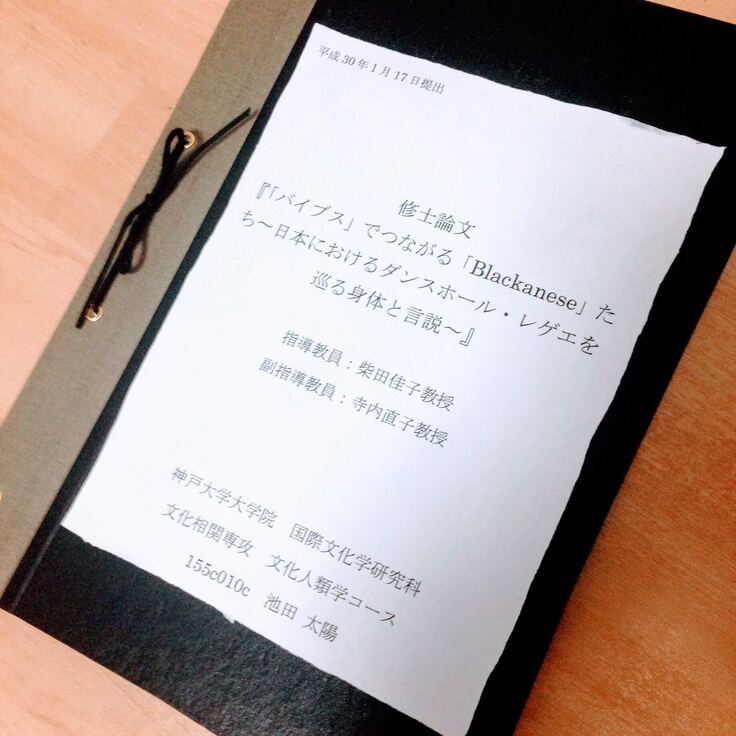 平成30年1月17日提出
修士論文
『「バイブス」でつながる「Blackanese」た
ち～日本におけるダンスホール・レゲエを
巡る身体と言説～』
指導教員：柴田佳子教授
副指導教員：寺内直子教授
神戸大学大学院　国際文化学研究科
文化相関専攻　文化人類学コース
155c010c　池田 太陽